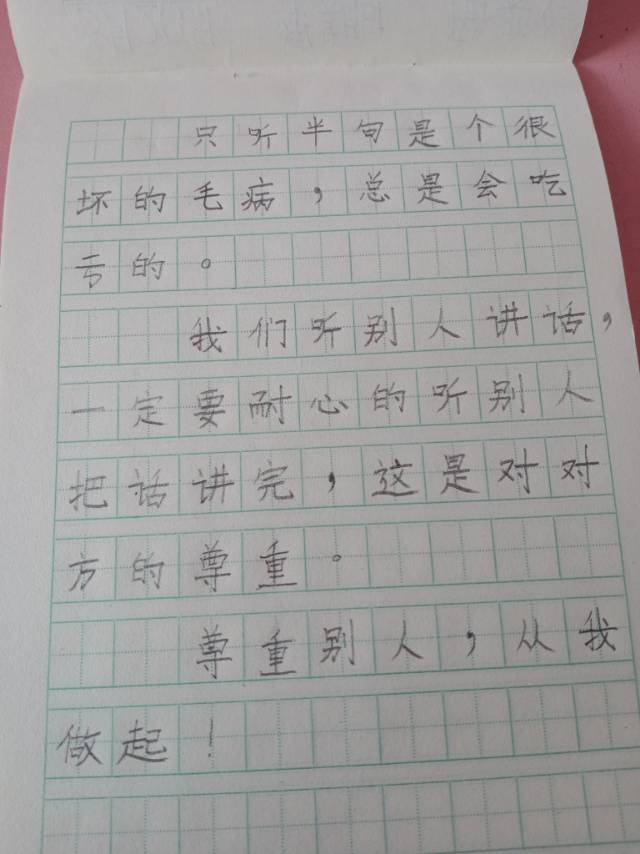 只听半句是个很
坏的毛病，总是会吃
亏的。
我们听别人讲话，
一定要耐心的听别人
把话讲完，这是对对
方的尊重。
尊重别人，从我
做起！